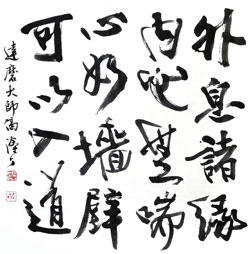 外息諸緣
内心無喘
心如墻壁
可以入道
達磨大師偈